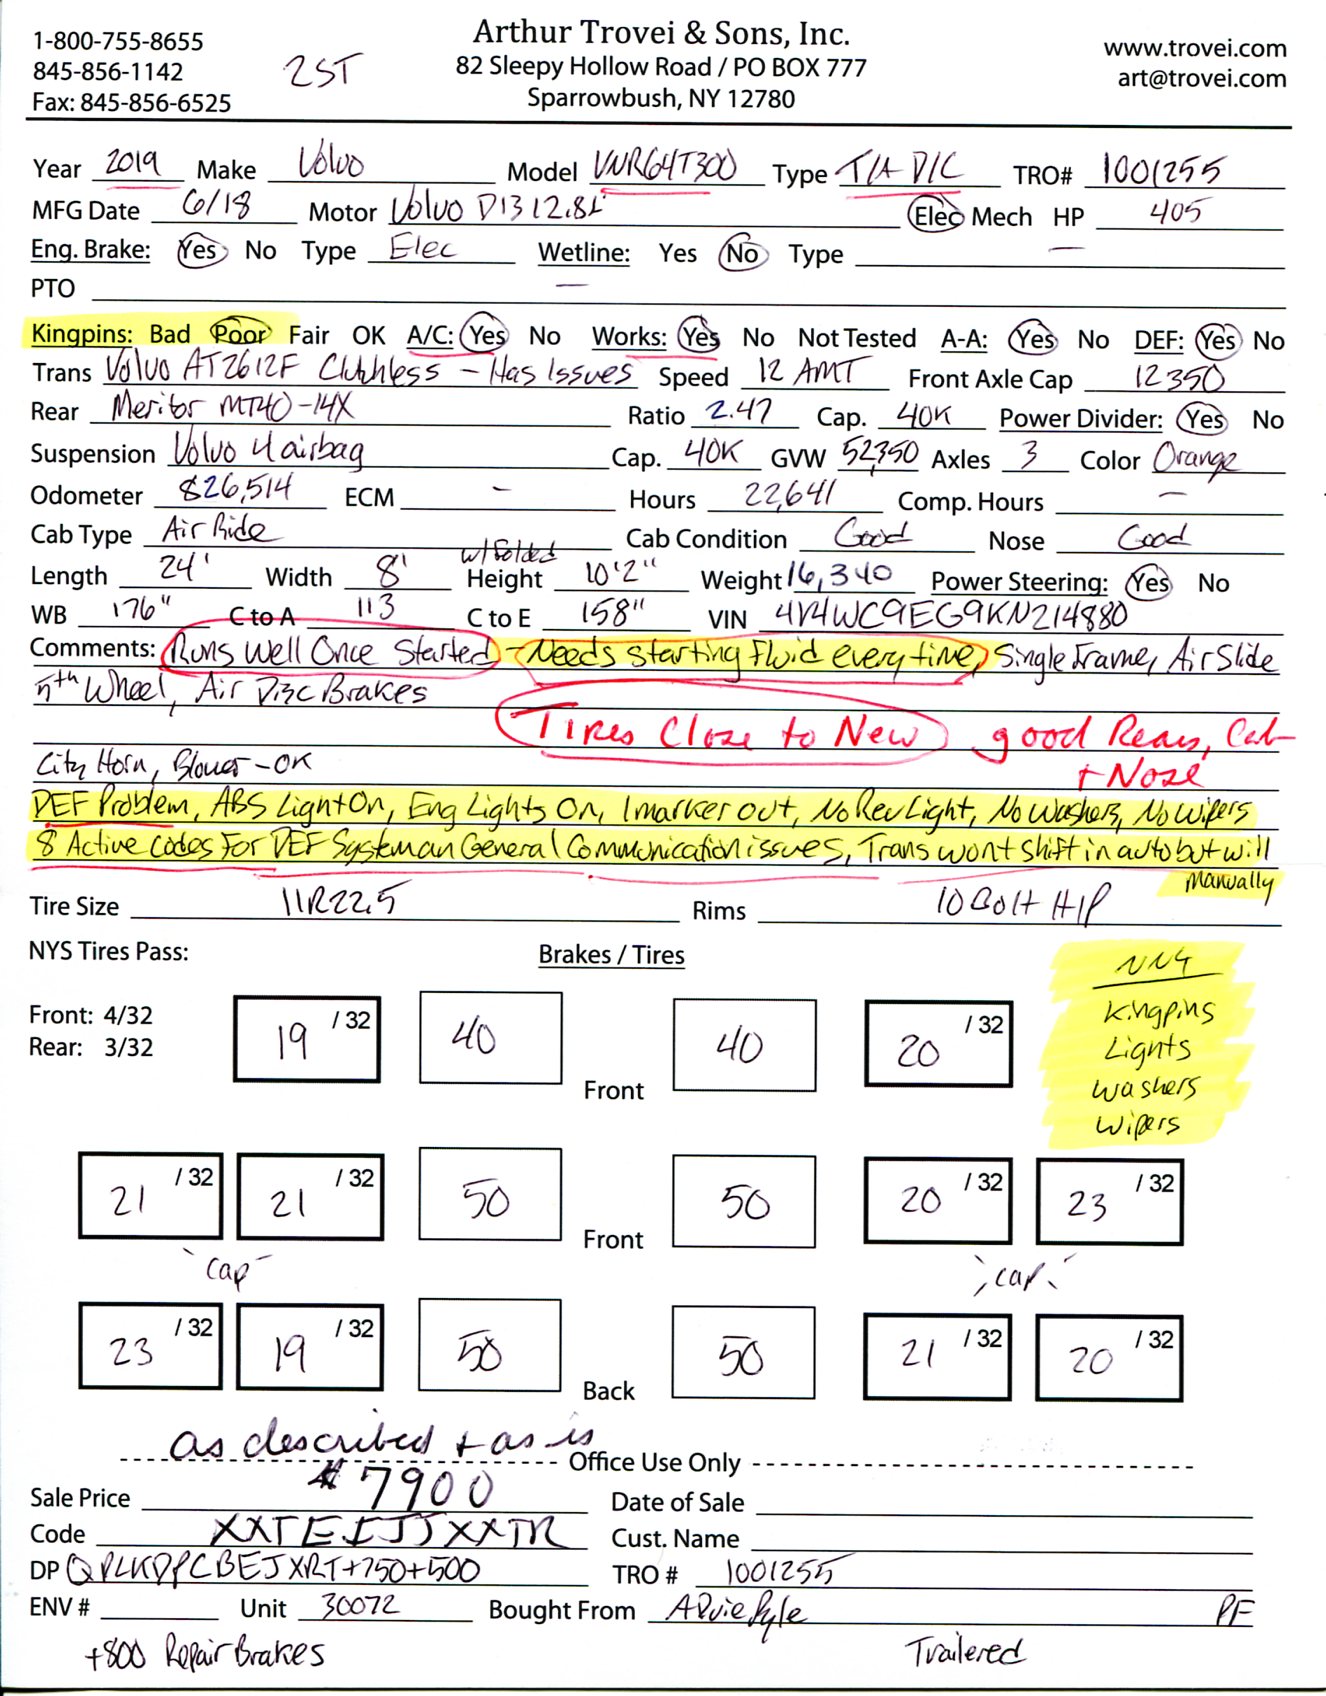 1-800-755-8655
845-856-1142
Fax: 845-856-6525
2ST
Arthur Trovei & Sons, Inc.
82 Sleepy Hollow Road / PO BOX 777
Sparrowbush, NY 12780
www.trovei.com
art@trovei.com
Year 2019 Make Volvo Model VNR64T300 Type T/A D/C TRO# 1001255
MFG Date 6/18 Motor Volvo D13 12.8L Elec Mech HP 405
Eng. Brake: Yes No Type Elec Wetline: Yes No Type —
PTO —
Kingpins: Bad Poor Fair OK A/C: Yes No Works: Yes No Not Tested A-A: Yes No DEF: Yes No
Trans Volvo AT2612F Clutchless - Has Issues Speed 12 AMT Front Axle Cap 12350
Rear Meritor MT40-14X Ratio 2.47 Cap. 40K Power Divider: Yes No
Suspension Volvo 4 airbag Cap. 40K GVW 52,350 Axles 3 Color Orange
Odometer 826,514 ECM - Hours 22,641 Comp. Hours —
Cab Type Air Ride Cab Condition Good Nose Good
Length 24' Width 8' w/Folded Height 10'2" Weight 16,340 Power Steering: Yes No
WB 176" C to A 113 C to E 158" VIN 4V4WC9EG9KN214880
Comments: Runs Well Once Started - Needs starting Fluid every time, Single Frame, Air Slide
5th Wheel, Air Disc Brakes
Tires Close to New good Rears, Cab
+ Nose
City Horn, Blower - OK
DEF Problem, ABS Light On, Eng Lights On, 1 marker out, No Rev Light, No Washers, No Wipers
8 Active Codes For DEF System an General Communication issues, Trans wont shift in auto but will
Manually
Tire Size 11R22.5 Rims 10 Bolt H/P
NYS Tires Pass: Brakes / Tires
NNY
Kingpins
Lights
Washers
Wipers
Front: 4/32
Rear: 3/32
19 /32 40 Front 40 20 /32
21 /32 21 /32 50 Front 50 20 /32 23 /32
"cap" "cap"
23 /32 19 /32 50 Back 50 21 /32 20 /32
as described + as is
Office Use Only
Sale Price $7900 Date of Sale
Code XXTEIJJXXTR Cust. Name
DP QPLKDPCBEJXRT+750+500 TRO # 1001255
ENV # Unit 30072 Bought From PF
+800 Repair Brakes Trailered